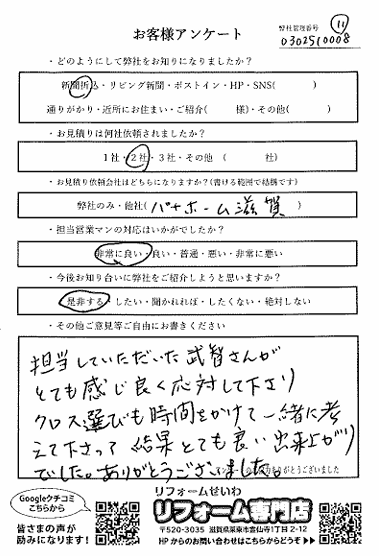 お客様アンケート
弊社管理番号 ⑪
0302510008
・どのようにして弊社をお知りになりましたか?
新聞折込・リビング新聞・ポストイン・HP・SNS( )
通りがかり・近所にお住まい・ご紹介( 様)・その他( )
・お見積りは何社依頼されましたか?
1社・2社・3社・その他 ( 社)
・お見積り依頼会社はどちらになりますか?(書ける範囲で結構です)
弊社のみ・他社( パナホーム滋賀 )
・担当営業マンの対応はいかがでしたか?
非常に良い・良い・普通・悪い・非常に悪い
・今後お知り合いに弊社をご紹介しようと思いますか?
是非する・したい・聞かれれば・したくない・絶対しない
・その他ご意見等ご自由にお書きください
担当していただいた武智さんが
とても感じ良く応対して下さり
クロス選びも時間をかけて一緒に考
えて下さって結果とても良い出来上がり
でした。ありがとうございました。
ありがとうございました
Googleクチコミ
こちらから
皆さまの声が
励みになります!
リフォームせいわ
リフォーム専門店
〒520-3035 滋賀県栗東市霊仙寺1丁目2-12
HPからのお問い合わせはこちらからどうぞ